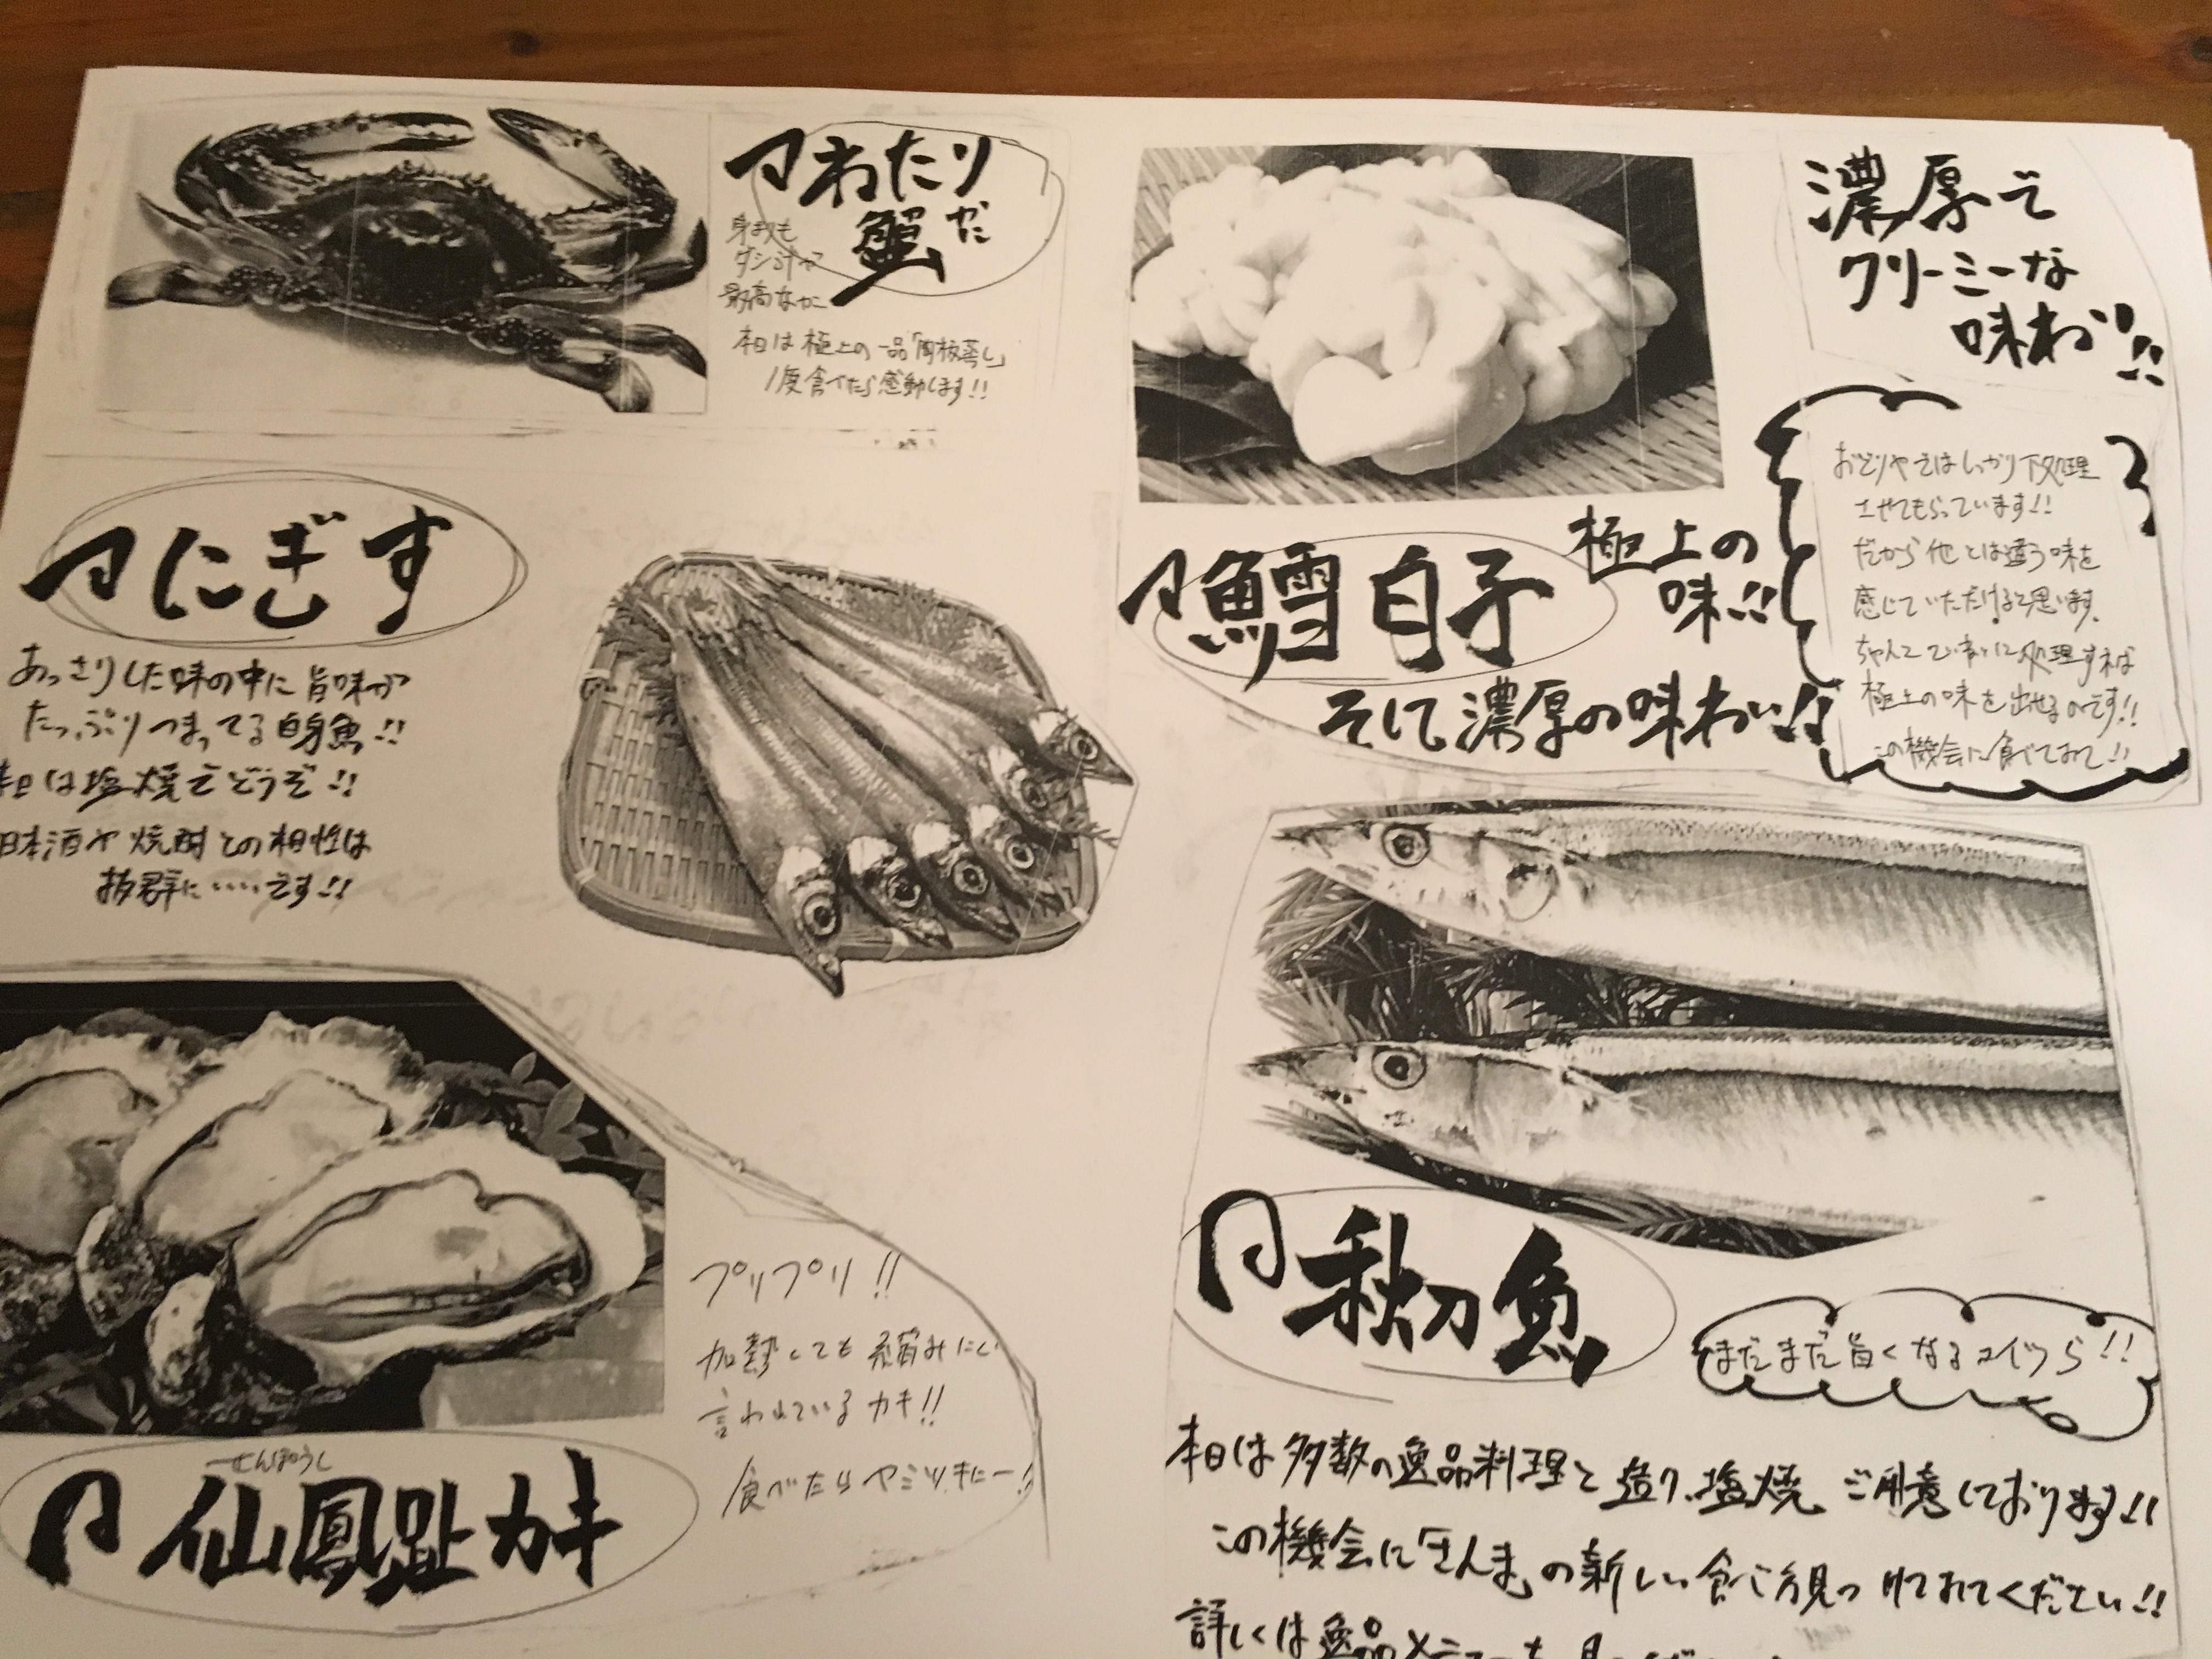 わたり
蟹だ
身もりも
ダシ汁も
最高なカニ
本日は極上の一品「陶板蒸し」
1度食べたら感動します!!
にぎす
あっさりした味の中に旨味が
たっぷりつまってる白身魚!!
本日は塩焼でどうぞ!!
日本酒や焼酎との相性は
抜群に・・・・です!!
プリプリ!!
加熱しても縮みにくい
言われているカキ!!
食べたらヤミツキにー!
せんぽうし
仙鳳趾カキ
濃厚で
クリーミーな
味わい!!
鱈白子
極上の
味!!
そして濃厚の味わい!!
おどりやではしっかり下処理
させてもらっています!!
だから他とは違う味を
感じていただけると思います。
ちゃんとていねいに処理すれば
極上の味を出せるのです!!
この機会に食べてみて!!
秋刀魚
まだまだ旨くなるコイツら!!
本日は多数の逸品料理と造り、塩焼ご用意しております!!
この機会に「さんま」の新しい食べ方見つけてみてください!!
詳しくは逸品メニューを見